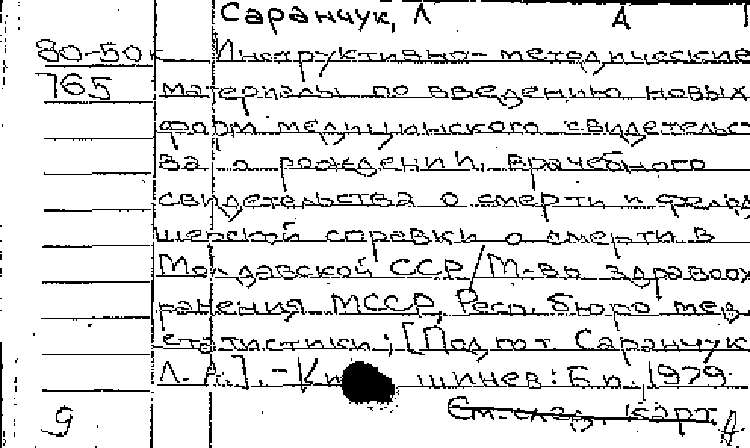 Саранчук, Л А
80-50к Инструктивно-методические
765 материалы по введению новых
форм медицинского свидетельст
ва о рождении, врачебного
свидетельства о смерти и фельд
шерской справки о смерти в
Молдавской ССР/М-во здравоох
ранения МССР, Респ. бюро мед.
статистики; [Подгот. Саранчук
Л. А.]. - Кишинев: Б.и., 1979.
См. след. карт.
9